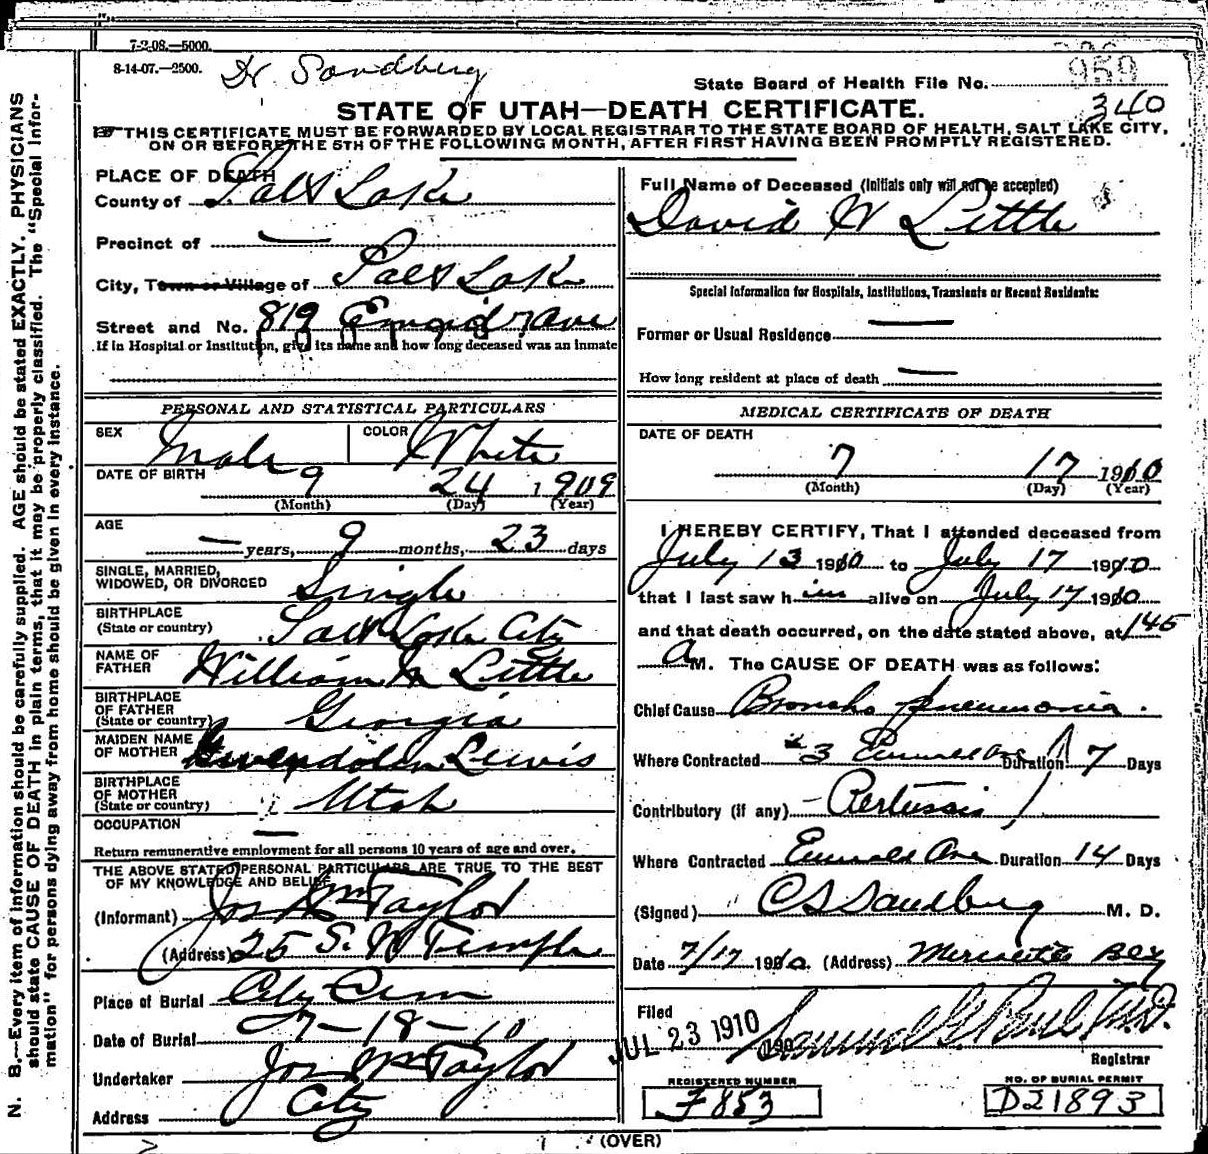 7-2-08.—5000.
8-14-07.—2500.
Dr Sandberg
State Board of Health File No.
959
340
STATE OF UTAH—DEATH CERTIFICATE.
THIS CERTIFICATE MUST BE FORWARDED BY LOCAL REGISTRAR TO THE STATE BOARD OF HEALTH, SALT LAKE CITY,
ON OR BEFORE THE 5TH OF THE FOLLOWING MONTH, AFTER FIRST HAVING BEEN PROMPTLY REGISTERED.
PLACE OF DEATH
County of Salt Lake
Precinct of —
City, Town or Village of Salt Lake
Street and No. 819 Emerald Ave
If in Hospital or Institution, give its name and how long deceased was an inmate
PERSONAL AND STATISTICAL PARTICULARS
SEX Male COLOR White
DATE OF BIRTH 9 24 1909
(Month) (Day) (Year)
AGE
— years, 9 months, 23 days
SINGLE, MARRIED,
WIDOWED, OR DIVORCED Single
BIRTHPLACE
(State or country) Salt Lake City
NAME OF
FATHER William M Little
BIRTHPLACE
OF FATHER
(State or country) Georgia
MAIDEN NAME
OF MOTHER Gwendolen Lewis
BIRTHPLACE
OF MOTHER
(State or country) Utah
OCCUPATION —
Return remunerative employment for all persons 10 years of age and over.
THE ABOVE STATED PERSONAL PARTICULARS ARE TRUE TO THE BEST
OF MY KNOWLEDGE AND BELIEF
(Informant) Jos Wm Taylor
(Address) 25 S. W Temple
Place of Burial City Cem
Date of Burial 7-18-10
Undertaker Jos Wm Taylor
Address City
Full Name of Deceased (Initials only will not be accepted)
David W Little
Special Information for Hospitals, Institutions, Transients or Recent Residents:
Former or Usual Residence —
How long resident at place of death —
MEDICAL CERTIFICATE OF DEATH
DATE OF DEATH
7 17 1910
(Month) (Day) (Year)
I HEREBY CERTIFY, That I attended deceased from
July 13 1910 to July 17 1910
that I last saw him alive on July 17 1910
and that death occurred, on the date stated above, at 145
A M. The CAUSE OF DEATH was as follows:
Chief Cause Broncho pneumonia.
Where Contracted 3 Emerald Ave Duration 7 Days
Contributory (if any) Pertussis
Where Contracted Emerald Ave Duration 14 Days
(Signed) C S Sandberg M. D.
Date 7/17 1910. (Address)
Filed
JUL 23 1910 Samuel G. Paul M.D.
Registrar
REGISTERED NUMBER
F853
NO. OF BURIAL PERMIT
D21893
(OVER)
N. B.—Every item of information should be carefully supplied. AGE should be stated EXACTLY. PHYSICIANS
should state CAUSE OF DEATH in plain terms, that it may be properly classified. The "Special Infor-
mation" for persons dying away from home should be given in every instance.